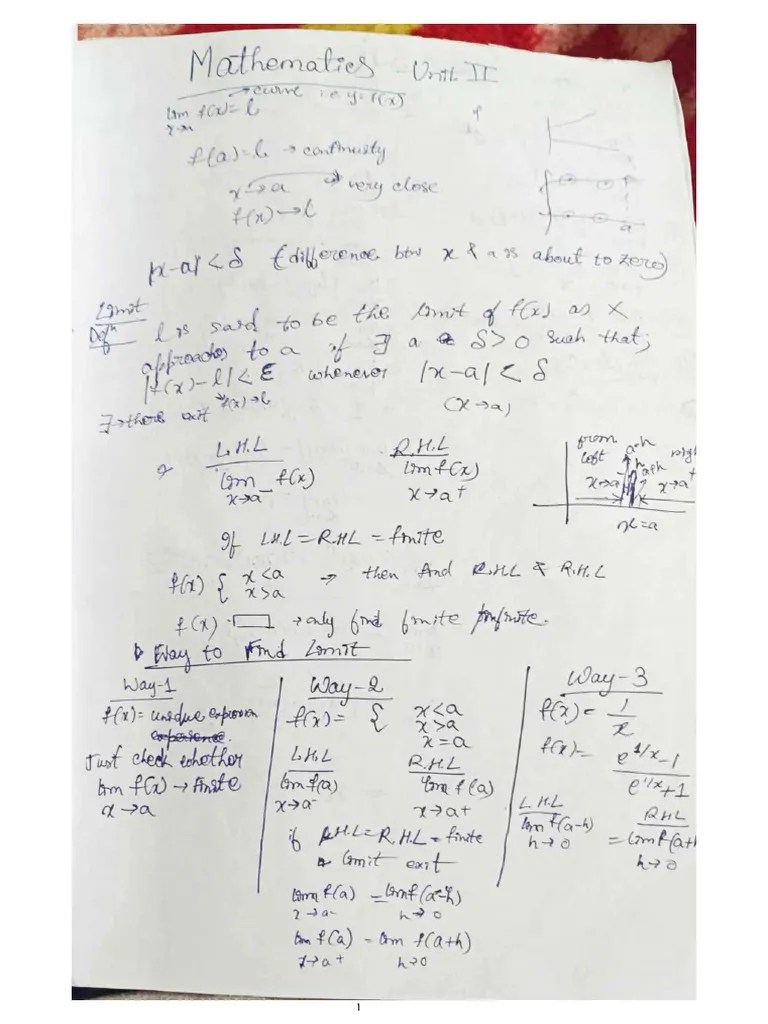 Mathematics Unit II
→ curve i.e y=f(x)
lim f(x) = l
x→a
f(a)=l → continuity
x→a → very close
f(x)→l
|x-a| < δ (difference btw x & a is about to zero)
Limit
Defn l is said to be the limit of f(x) as x
approaches to a if ∃ a δ>0 such that;
|f(x)-l| < ε whenever |x-a| < δ
f(x)→l (x→a)
∃→there exit
L.H.L R.H.L
lim f(x) lim f(x)
x→a⁻ x→a⁺
from left x→a⁻
a-h a+h
x→a⁺
x=a
If L.H.L = R.H.L = finite
f(x) { x<a x>a → then find R.H.L & R.H.L
f(x) → only find finite / infinite.
Way to Find Limit
Way-1
f(x) = unique expression
Just check whether
lim f(x) → finite
x→a
Way-2
f(x) = { x<a
x>a
x=a
L.H.L R.H.L
lim f(a) lim f(a)
x→a⁻ x→a+
if R.H.L = R.H.L = finite
limit exit
lim f(a) = lim f(a-h)
x→a- h→0
lim f(a) = lim f(a+h)
x→a+ h→0
Way-3
f(x) = 1/x
f(x) = e^1/x - 1
e^1/x + 1
L.H.L R.H.L
lim f(a-h) = lim f(a+h
h→0 h→0
1